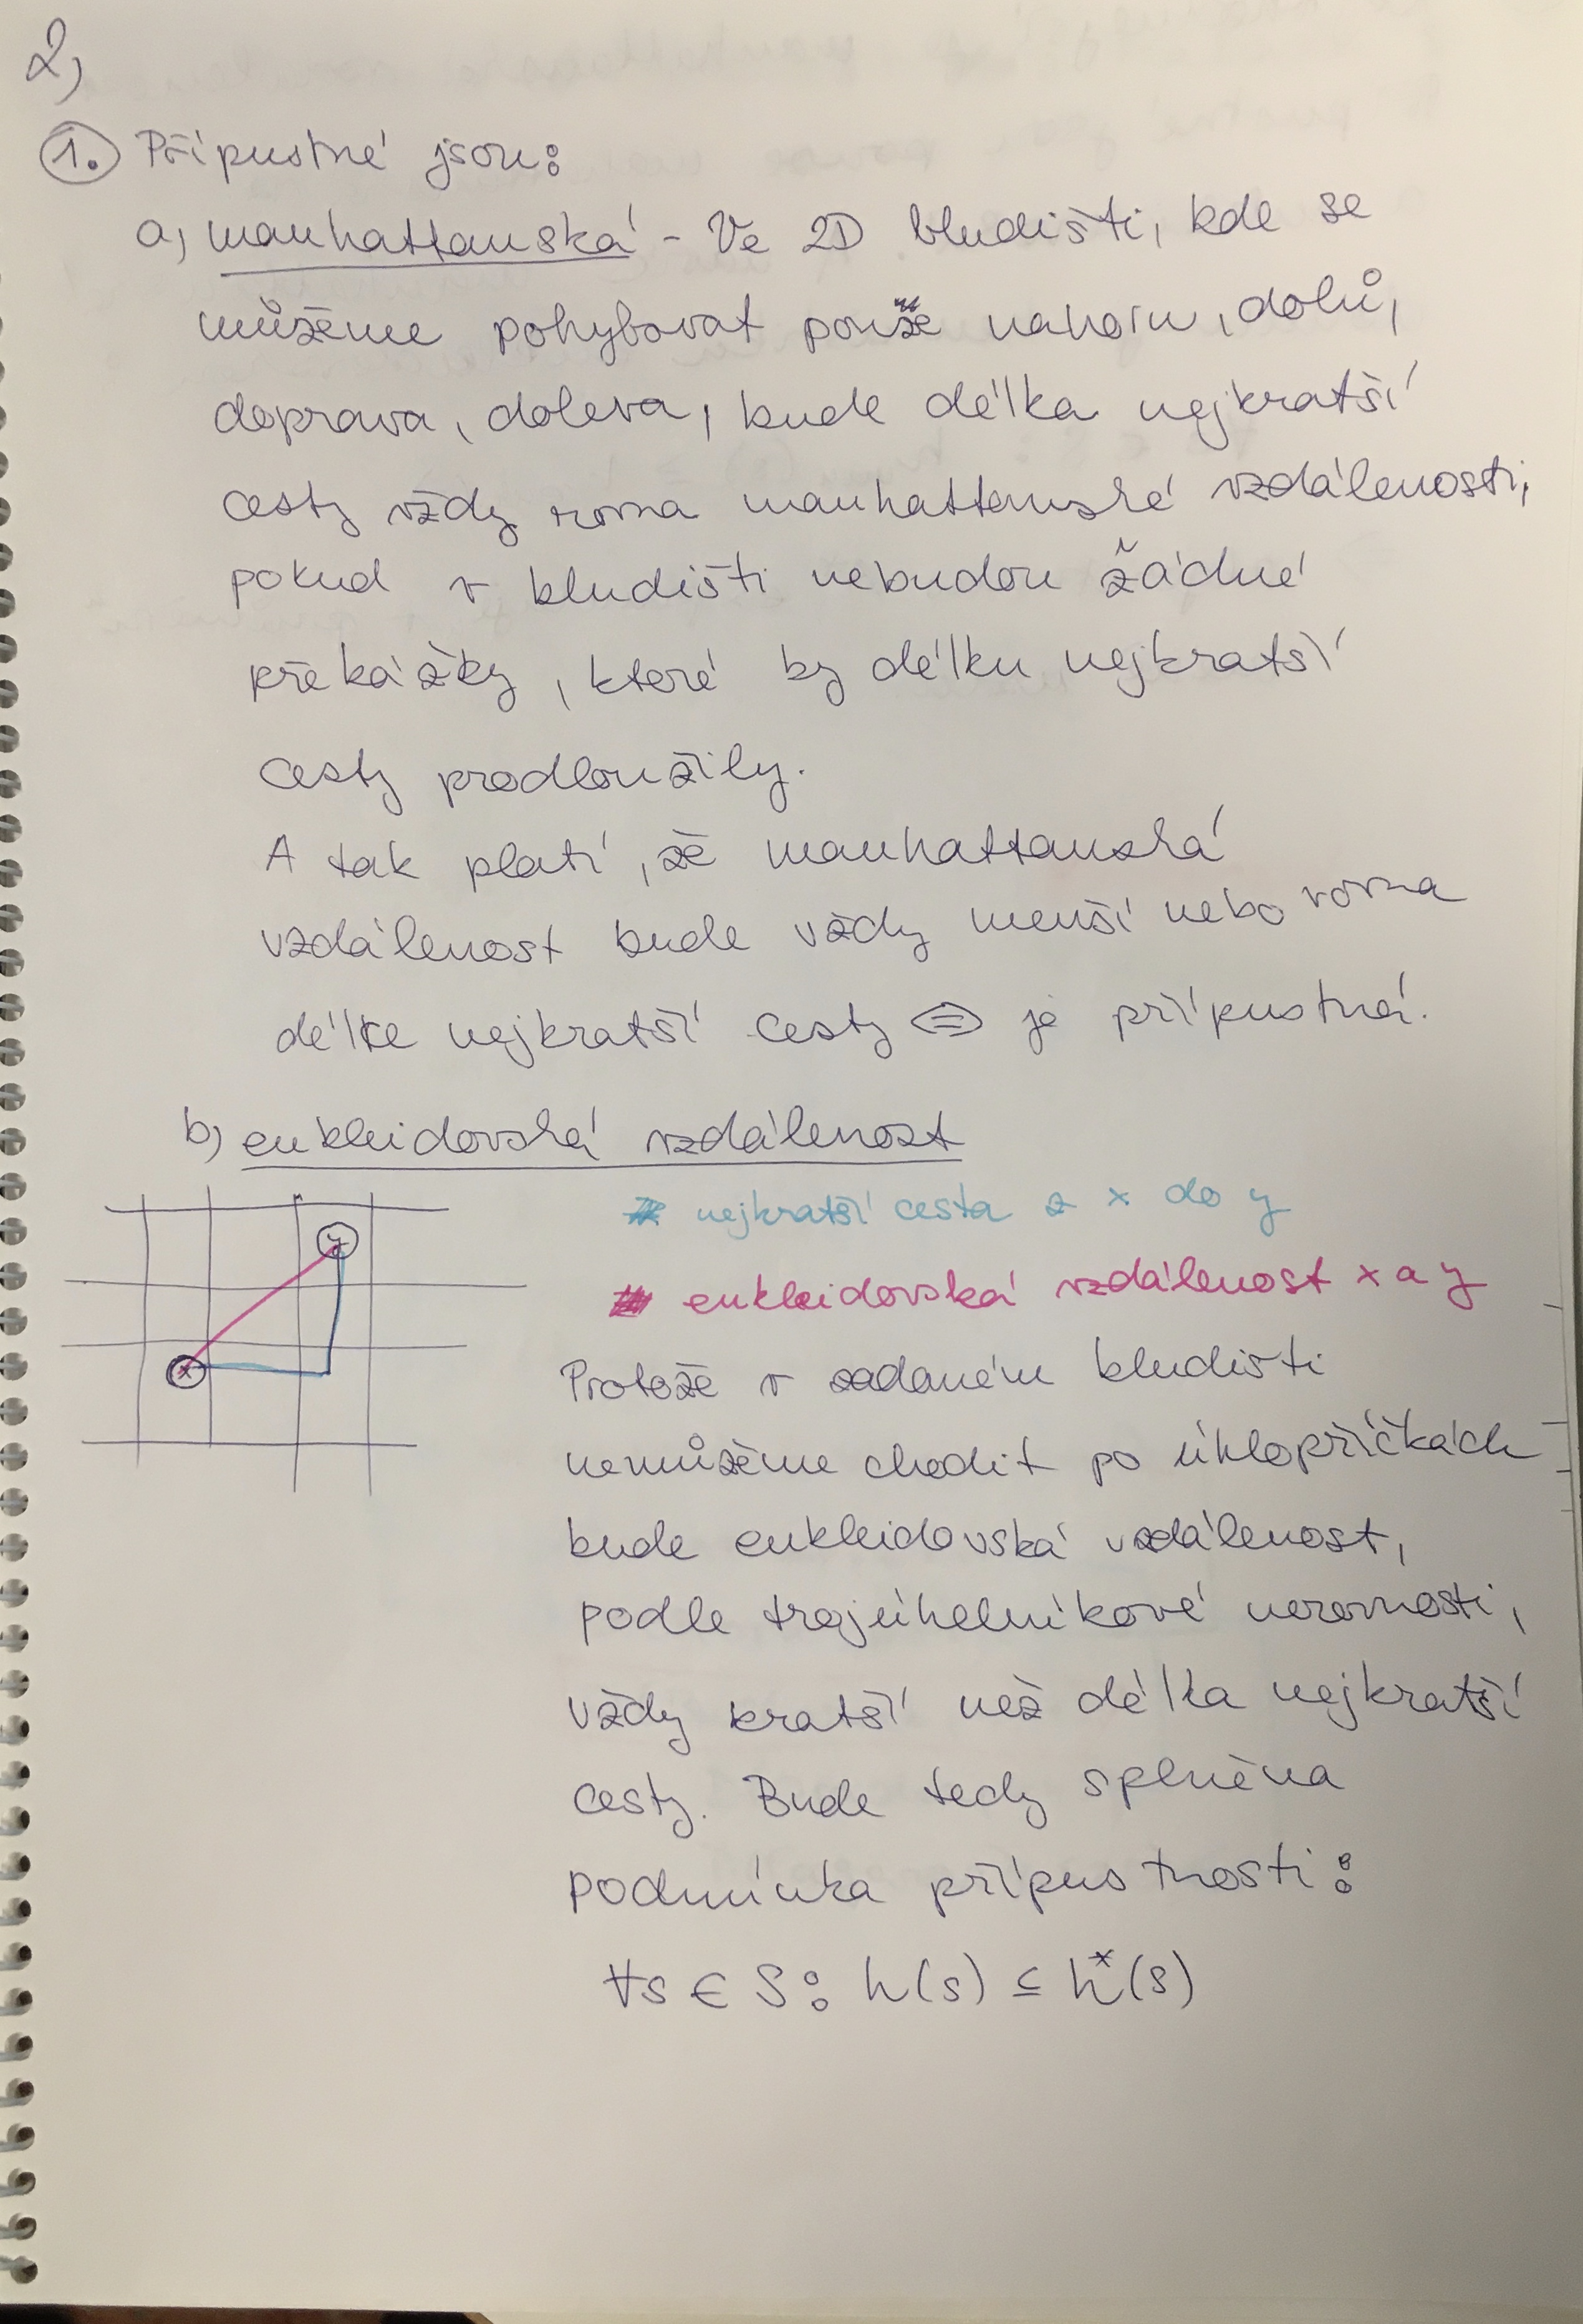 2)
1. Přípustné jsou:
a) manhattanská - Ve 2D bludišti, kde se
můžeme pohybovat pouze nahoru, dolů,
doprava, doleva, bude délka nejkratší
cesty vždy rovna manhattanské vzdálenosti,
pokud v bludišti nebudou žádné
překážky, které by délku nejkratší
cesty prodloužily.
A tak platí, že manhattanská
vzdálenost bude vždy menší nebo rovna
délke nejkratší cesty ⇔ je přípustná.
b) eukleidovská vzdálenost
nejkratší cesta z x do y
eukleidovská vzdálenost x a y
y
x
Protože v zadaném bludišti
nemůžeme chodit po úhlopříčkách
bude eukleidovská vzdálenost,
podle trojúhelníkové nerovnosti,
vždy kratší než délka nejkratší
cesty. Bude tedy splněna
podmínka přípustnosti:
∀s ∈ S: h(s) ≤ h*(s)